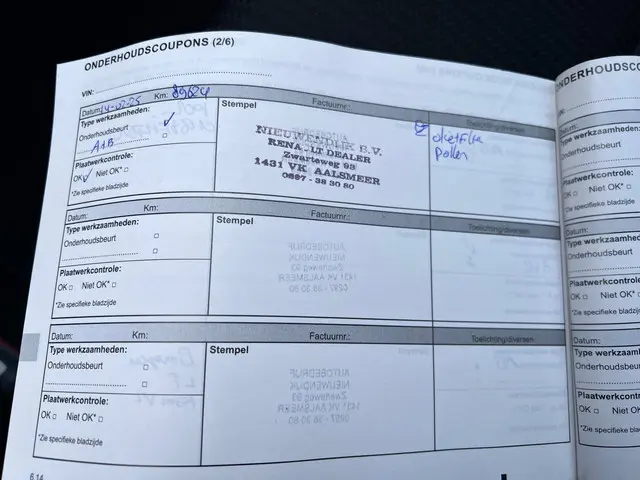 ONDERHOUDSCOUPONS (2/6)
VIN:
Datum: 14-02-25 Km:
Stempel
Factuurnr.:
Toelichting/diversen
Type werkzaamheden:
Onderhoudsbeurt
A+B
Plaatwerkcontrole:
OK Niet OK*
*Zie specifieke bladzijde
NIEUWENDIJK B.V.
RENAULT DEALER
Zwarteweg 93
1431 VK AALSMEER
0297 - 32 30 80
oliefilter
pollen
Datum: Km:
Stempel
Factuurnr.:
Toelichting/diversen
Type werkzaamheden:
Onderhoudsbeurt
Plaatwerkcontrole:
OK Niet OK*
*Zie specifieke bladzijde
Datum: Km:
Stempel
Factuurnr.:
Toelichting/diversen
Type werkzaamheden:
Onderhoudsbeurt
Plaatwerkcontrole:
OK Niet OK*
*Zie specifieke bladzijde
6.14
ONDERHOUDSCOU
VIN:
Datum:
Type werkzaamheden:
Onderhoudsbeurt
Plaatwerkcontrole:
OK Niet OK*
*Zie specifieke bladzijde
Datum:
Type werkzaamheden
Onderhoudsbeurt
Plaatwerkcontrole:
OK Niet OK*
*Zie specifieke bladzijde
Datum:
Type werkzaamheden:
Onderhoudsbeurt
Plaatwerkcontrole:
OK Niet OK*
*Zie specifieke bladzijde